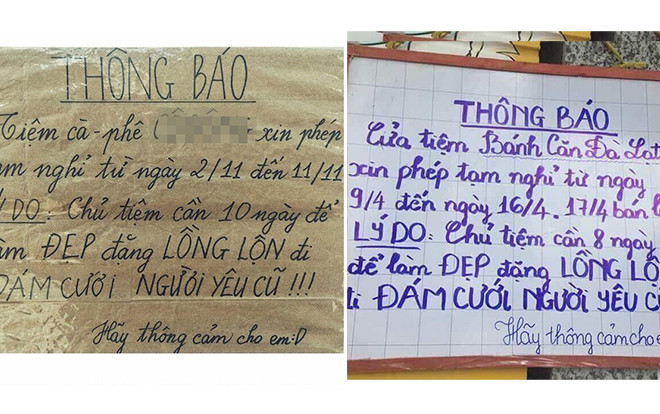 THÔNG BÁO
Tiệm cà-phê xin phép
ạm nghỉ từ ngày 2/11 đến 11/11
Ý DO: Chủ tiệm cần 10 ngày để
àm ĐẸP đặng LỒNG LỘN đi
ĐÁM CƯỚI NGƯỜI YÊU CŨ !!!
Hãy thông cảm cho em :D
THÔNG BÁO
Cửa tiệm Bánh Căn Đà Lạt
xin phép tạm nghỉ từ ngày
9/4 đến ngày 16/4. 17/4 bán
LÝ DO: Chủ tiệm cần 8 ngày
để làm ĐẸP đặng LỒNG LỘ
đi ĐÁM CƯỚI NGƯỜI YÊU C
Hãy thông cảm cho em